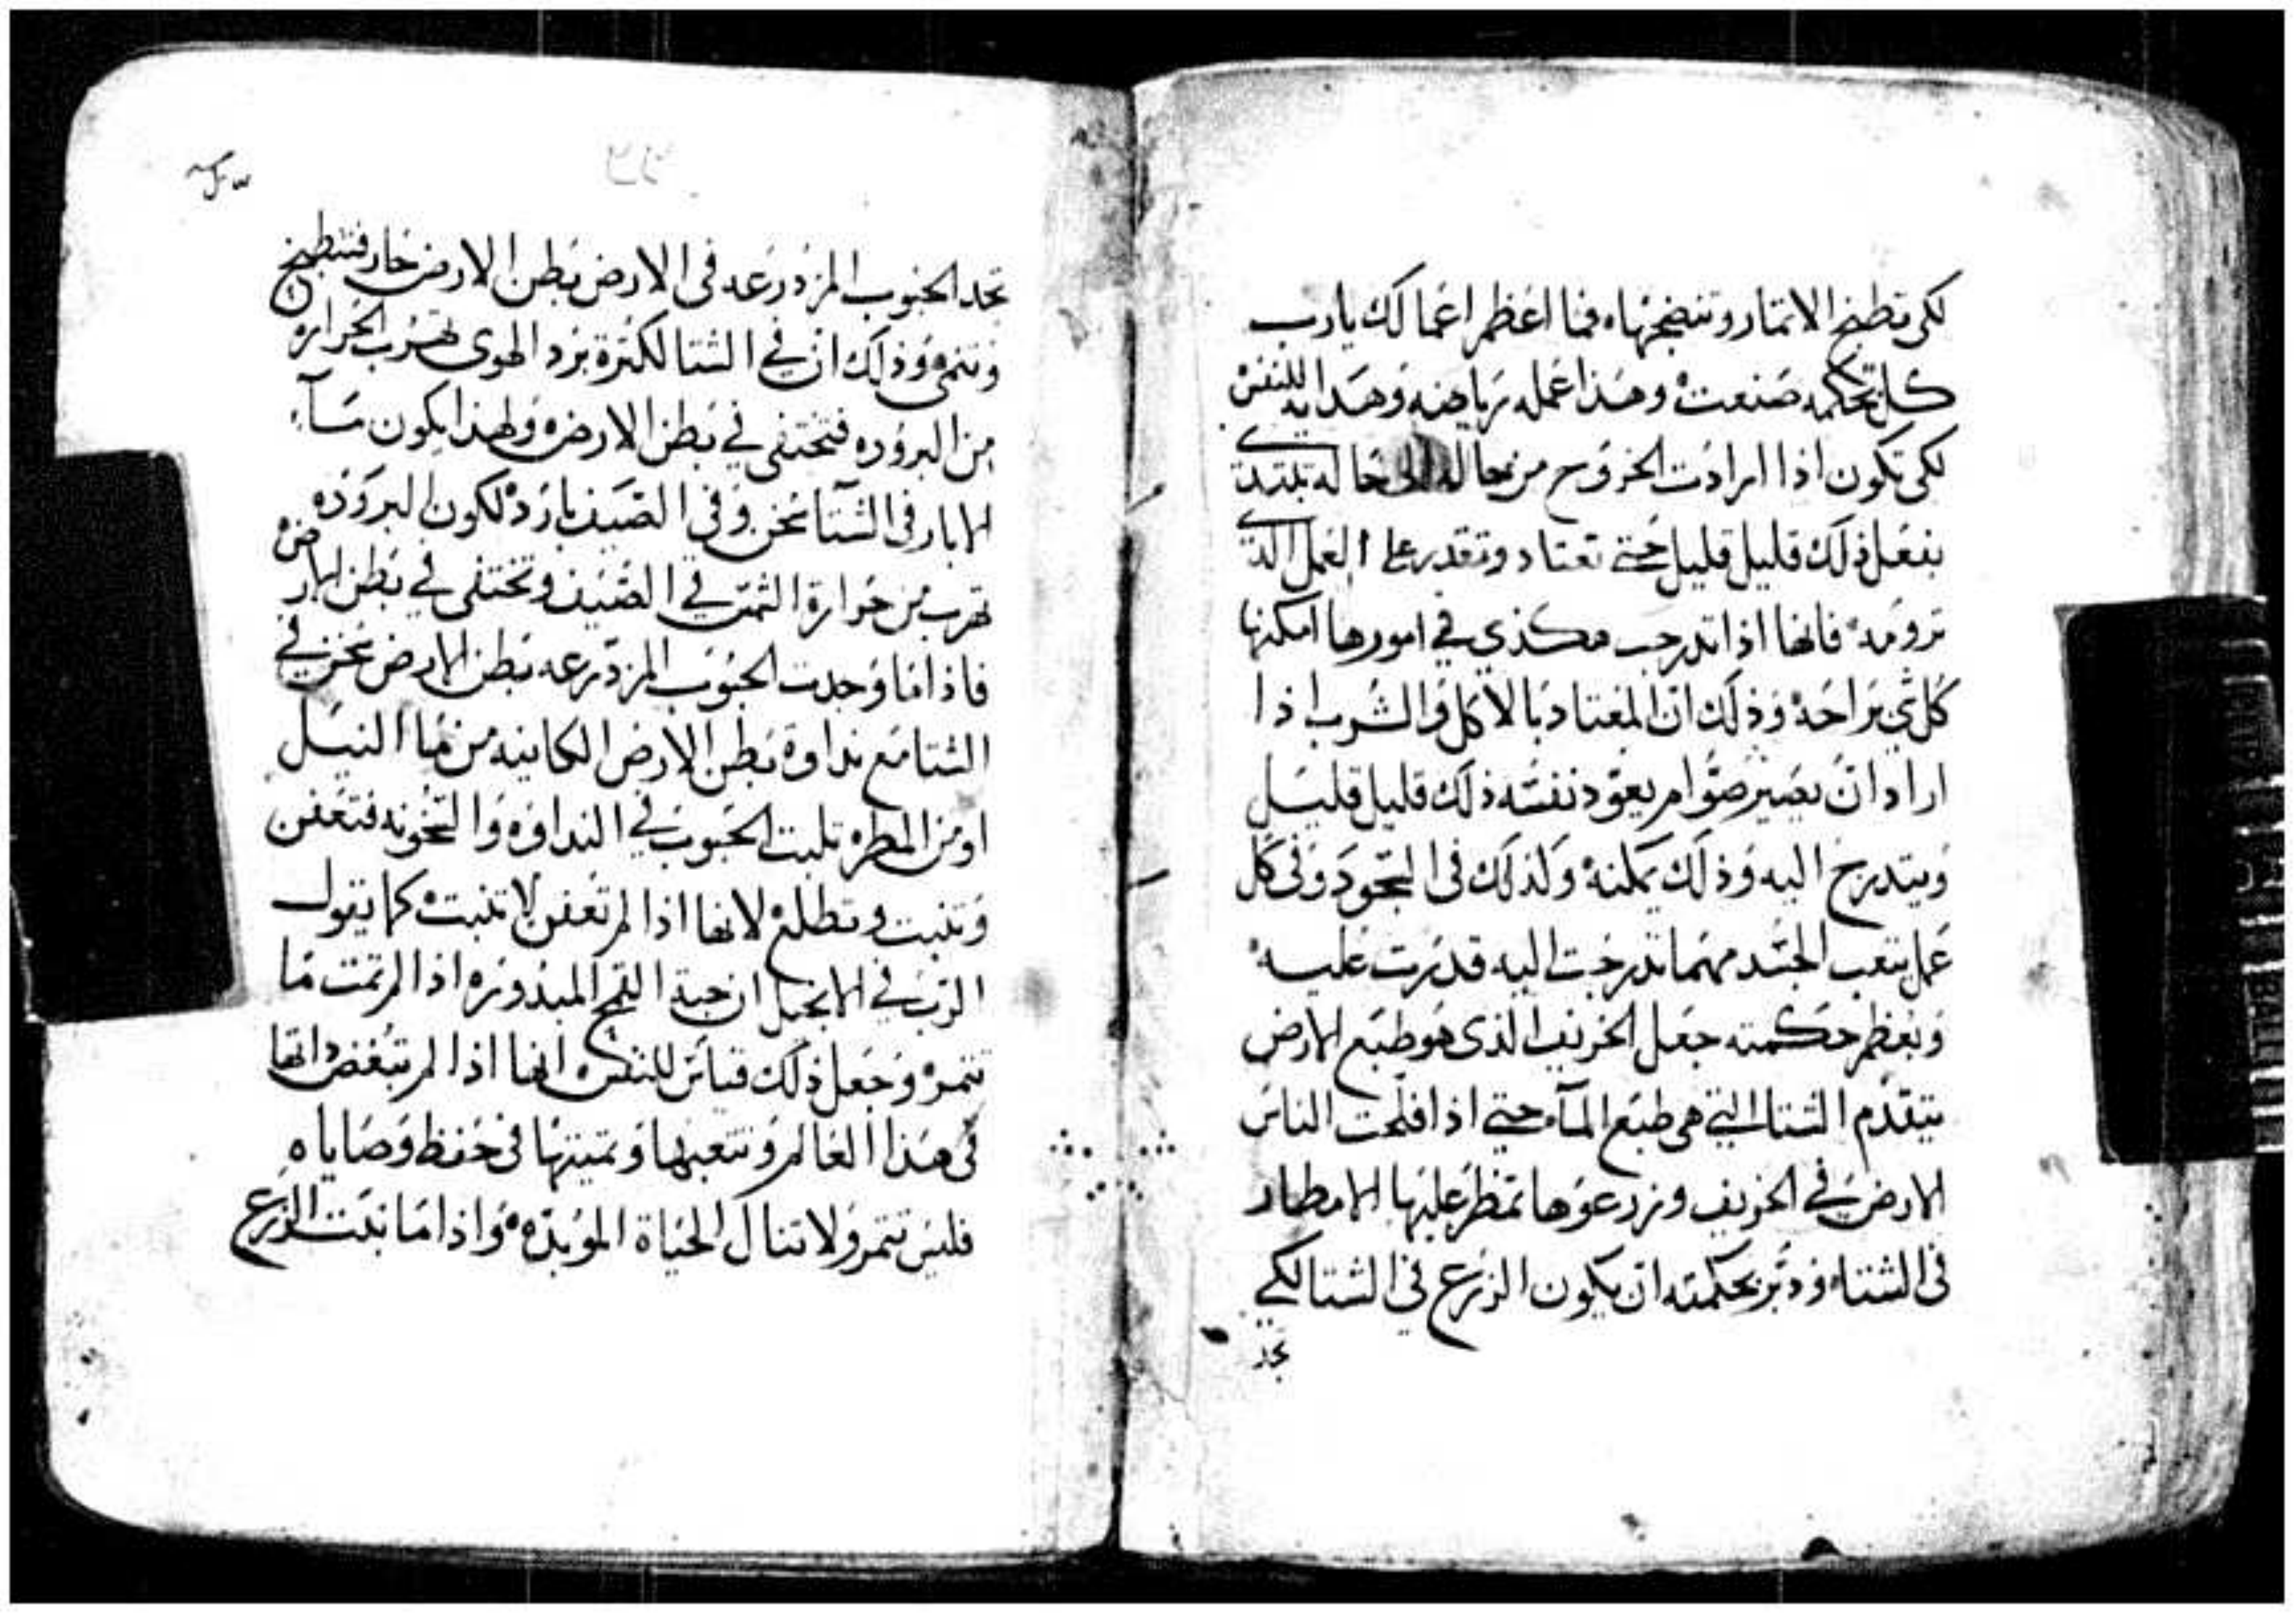 لكى تطبخ الاتمار وتنضجها، فما اعظم اعمالك يارب
كل بحكمه صنعت وهذا عمله رياضه وهدايه للنفس
لكى تكون اذا ارادت الخروج من حاله الى حاله تبتدى
بفعل ذلك قليل قليل حتى تعتاد وتقدر على العمل الذى
ترومه فانها اذا تدرجت هكذي في امورها امكنها
كل شي براحه وذلك ان المعتاد بالاكل والشرب اذا
اراد ان يصير صوام يعود نفسه ذلك قليل قليل
ويتدرج اليه وذلك يمكنه ولذلك فى السجود وفى كل
عمل يتعب الجسد مهما تدرجت اليه قدرت عليه
وبعظم حكمته جعل الخريف الذى هو طبع الارض
يتقدم الشتا التي هى طبع المآء حتي اذا فلحت الناس
الارض في الخريف وزرعوها تمطر عليها الامطار
فى الشتاء ودبر بحكمته ان يكون الزرع في الشتا لكي
تجد
تجد الحبوب المزدرعه فى الارض بطن الارض حار فتنطبخ
وتنمى وذلك ان في الشتا لكثرة برد الهوى تهرب الحراره
من البروده فتختفى في بطن الارض ولهذا يكون مآء
الابار فى الشتآ سخن وفى الصيف بارد لكون البروده
تهرب من حرارة الشمس في الصيف وتختفى في بطن الارض
فاذا ما وجدت الحبوب المزدرعه بطن الارض سخن في
الشتا مع نداوة بطن الارض الكاينه من ما النيل
او من المطر، تلبت الحبوب في النداوه والسخونه فتعفن
وتنبت وتطلع لانها اذا لم تعفن لا تنبت كما يقول
الرب في الانجيل ان حبة القمح المبذوره اذا لم تمت ما
تتمر وجعل ذلك قياس للنفس انها اذا لم تبغض ذاتها
فى هذا العالم وتتعبها وتميتها فى حفظ وصاياه
فليس تتمر ولا تنال الحياة الموبده واذا ما نبت الزرع